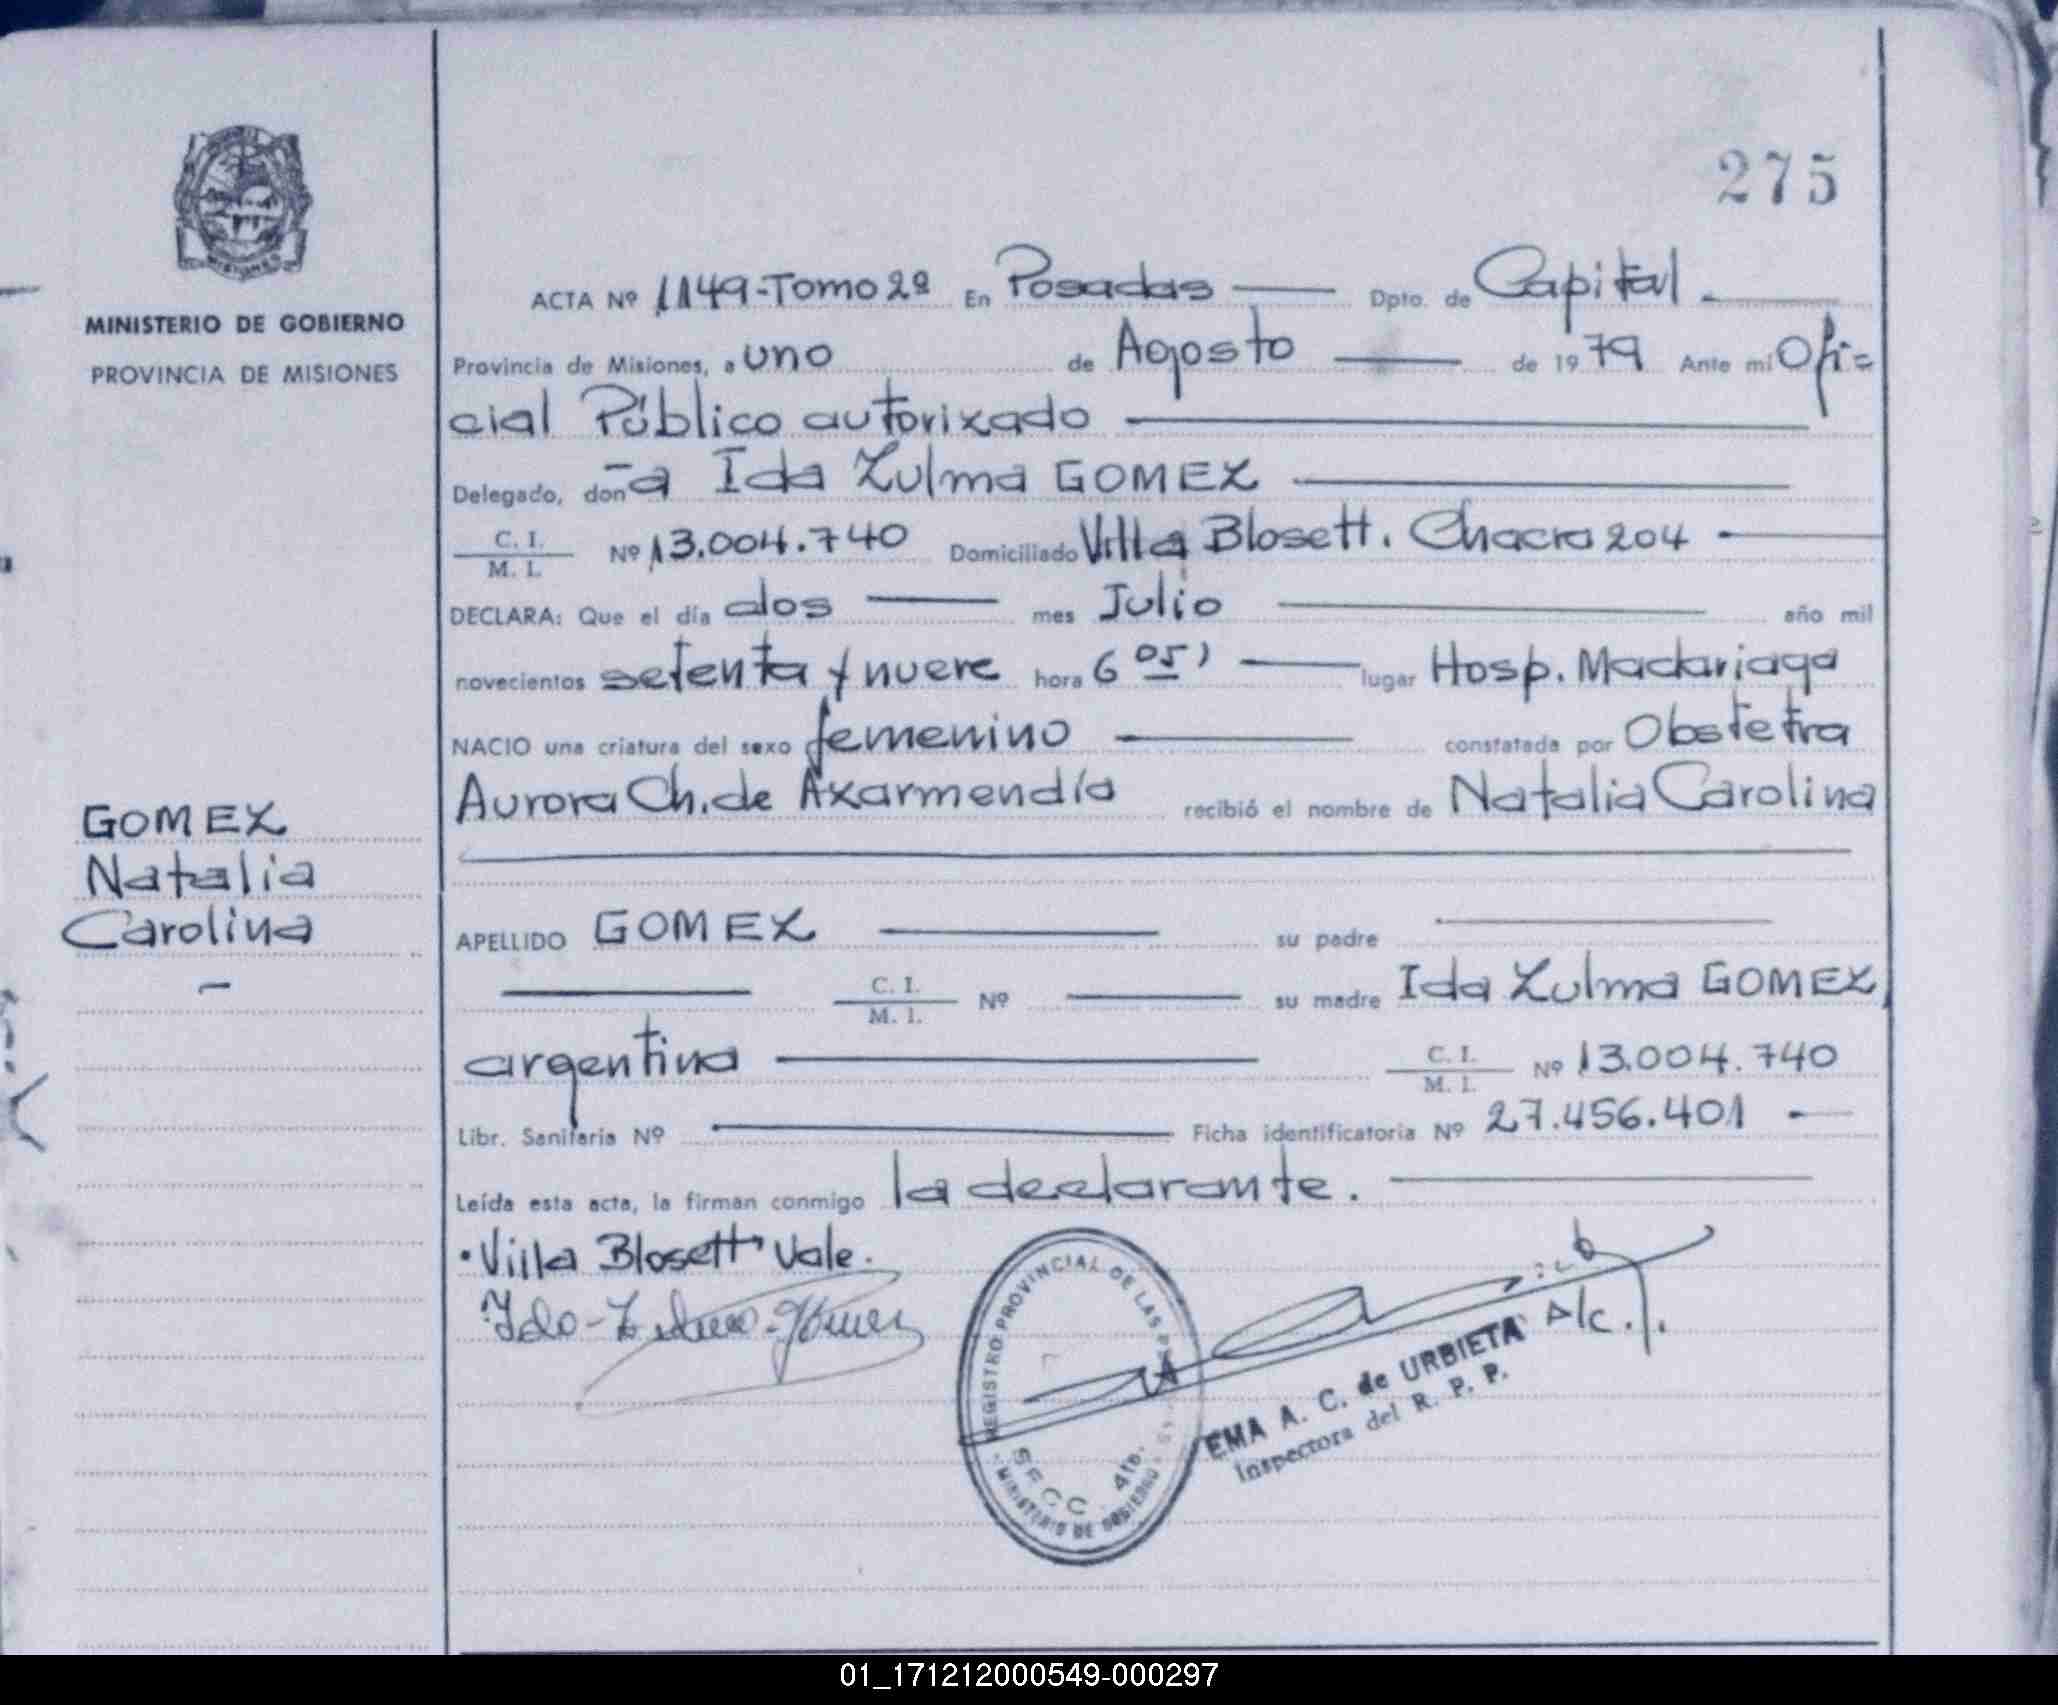 275
MINISTERIO DE GOBIERNO
PROVINCIA DE MISIONES
GOMEZ
Natalia
Carolina
ACTA Nº 1149-Tomo 2º En Posadas Dpto. de Capital
Provincia de Misiones, a uno de Agosto de 1979 Ante mí Ofi=
cial Público autorizado
Delegado, don-a Ida Zulma GOMEZ
C. I. / M. I. Nº 13.004.740 Domiciliado Villa Blosett. Chacra 204
DECLARA: Que el día dos mes Julio año mil
novecientos setenta y nueve hora 6 05' lugar Hosp. Madariaga
NACIO una criatura del sexo femenino constatada por Obstetra
Aurora Ch. de Azarmendía recibió el nombre de Natalia Carolina
APELLIDO GOMEZ su padre
C. I. / M. I. Nº su madre Ida Zulma GOMEZ,
argentina C. I. / M. I. Nº 13.004.740
Libr. Sanitaria Nº Ficha identificatoria Nº 27.456.401
Leída esta acta, la firman conmigo la declarante.
•Villa Blosett" Vale.
Ida-Zulma-Gomez
REGISTRO PROVINCIAL DE LAS
SECC. 4ta.
MINISTERIO DE GOBIERNO
EMA A. C. de URBIETA A/c.
Inspectora del R. P. P.
01_171212000549-000297